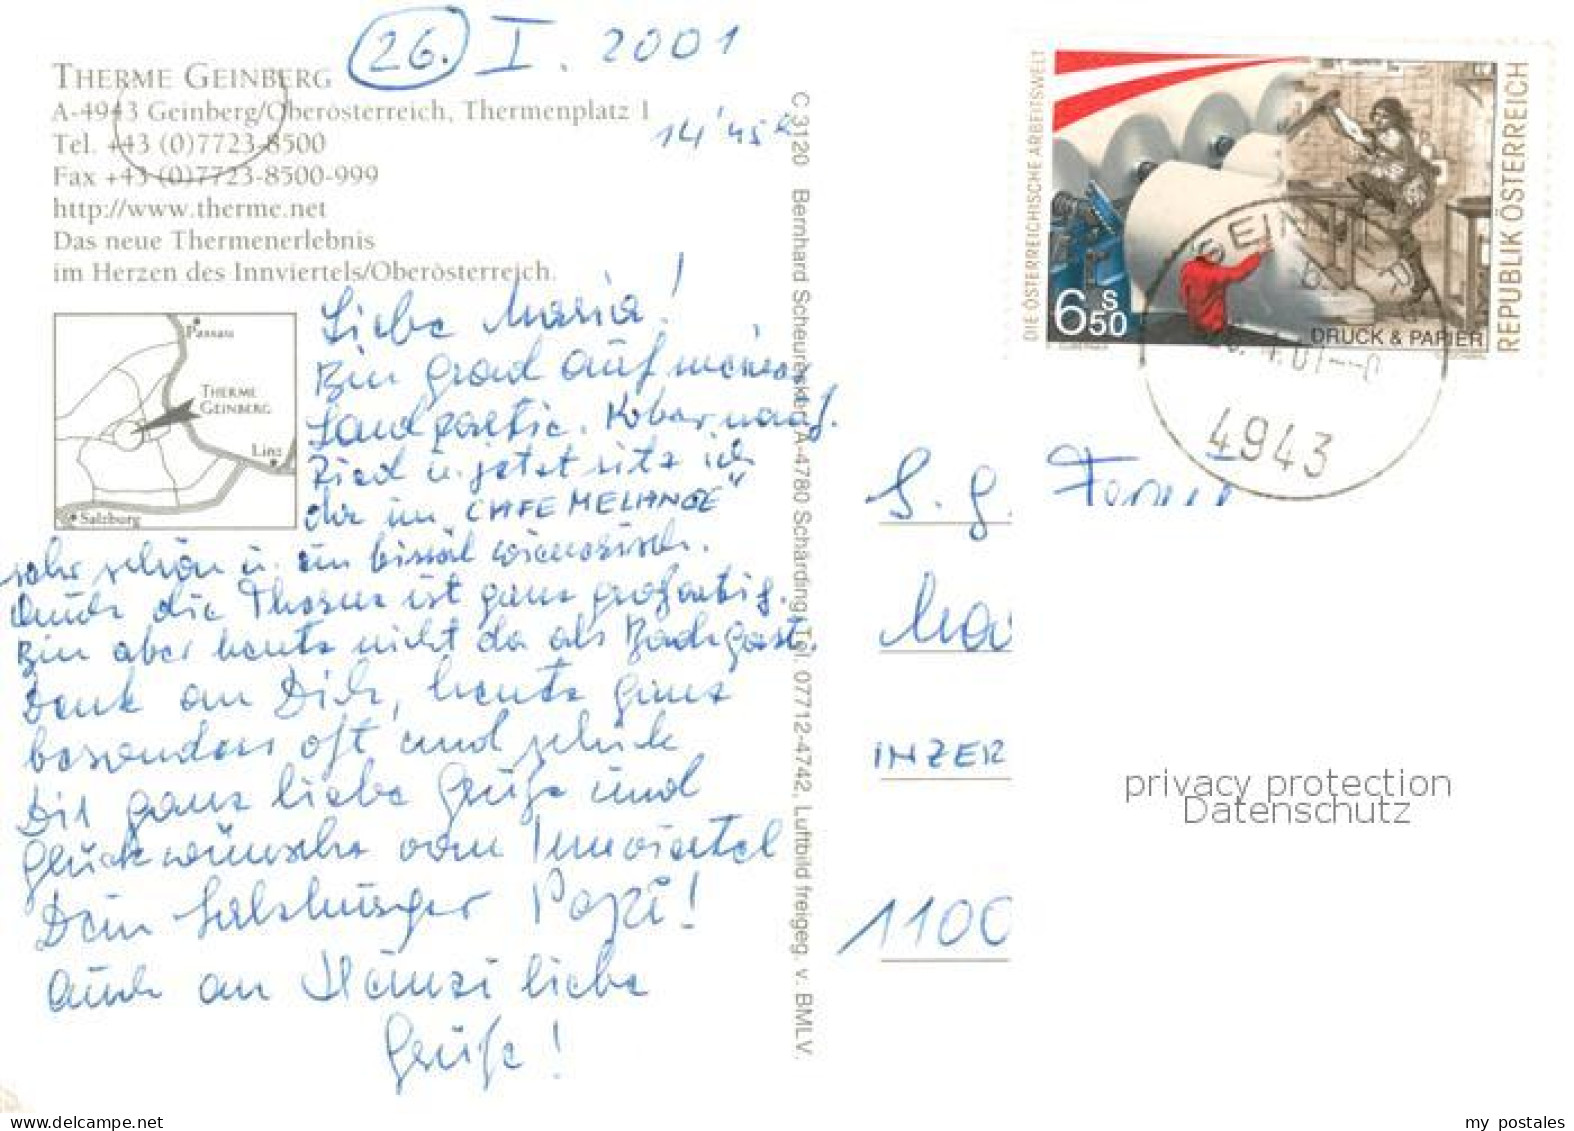 26. I. 2001
THERME GEINBERG
A-4943 Geinberg/Oberösterreich, Thermenplatz 1
14'45
Tel. +43 (0)7723-8500
Fax +43 (0)7723-8500-999
http://www.therme.net
Das neue Thermenerlebnis
im Herzen des Innviertels/Oberösterreich.
Passau
THERME
GEINBERG
Linz
Salzburg
Liebe Maria!
Bin grad auf meiner
Landpartie. Kobernauß.
Ried u. jetzt sitz ich
da im "CAFE MELANGE"
sehr schön u. ein bissal wienerisch.
Auch die Therme ist ganz großartig.
Bin aber heute nicht da als Badegast.
Denk an Dich, heute ganz
besonders oft und schick
Dir ganz liebe Grüße und
Glückwünsche vom Innviertel
Dein Salzburger Papi!
Auch an Hansi liebe
Grüße!
C 3120 Bernhard Scheurecker, A-4780 Schärding, Tel. 07712-4742, Luftbild freigeg. v. BMLV.
DIE ÖSTERREICHISCHE ARBEITSWELT
REPUBLIK ÖSTERREICH
6 S 50
DRUCK & PAPIER
4943
S. g.
INZER
1100
privacy protection
Datenschutz
my postales